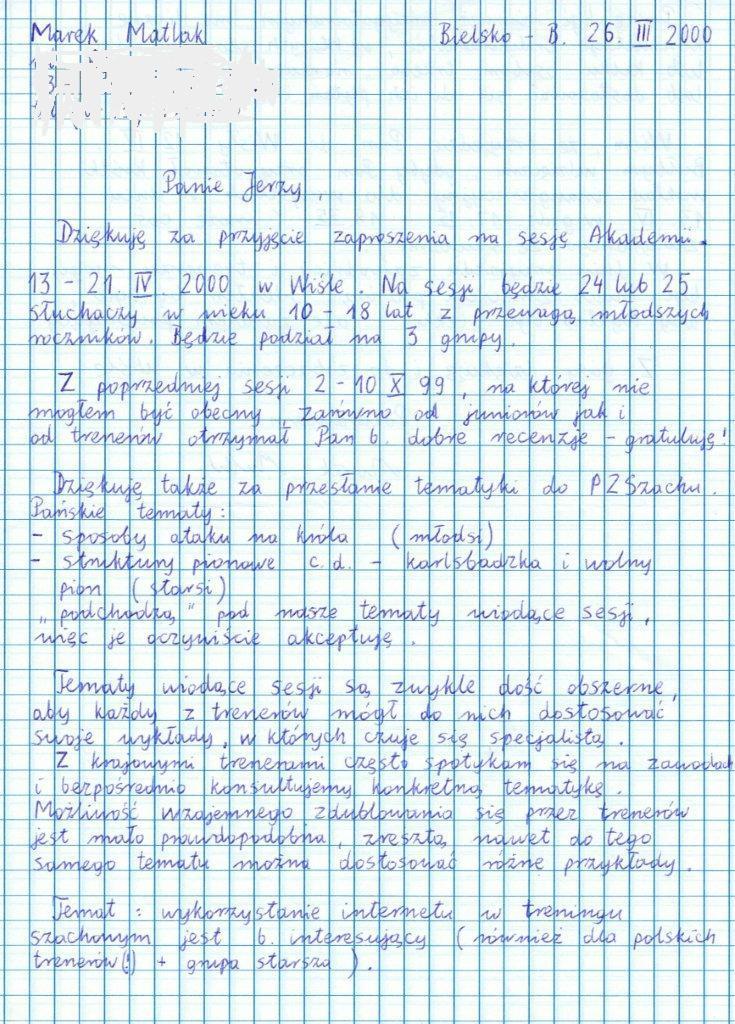 Marek Matlak
Bielsko - B. 26. III 2000
Panie Jerzy,
Dziękuję za przyjęcie zaproszenia na sesję Akademii.
13 - 21. IV. 2000 w Wiśle. Na sesji będzie 24 lub 25
słuchaczy w wieku 10 - 18 lat z przewagą młodszych
roczników. Będzie podział na 3 grupy.
Z poprzedniej sesji 2 - 10 X 99, na której nie
mogłem być obecny, zarówno od juniorów jak i
od trenerów otrzymał Pan b. dobre recenzje - gratuluję!
Dziękuję także za przesłanie tematyki do PZSzachu.
Pańskie tematy:
- sposoby ataku na króla (młodsi)
- struktury pionowe c.d. - karlsbadzka i wolny
pion (starsi)
„podchodzą" pod nasze tematy wiodące sesji,
więc je oczywiście akceptuję.
Tematy wiodące sesji są zwykle dość obszerne,
aby każdy z trenerów mógł do nich dostosować
swoje wykłady, w których czuje się specjalistą.
Z krajowymi trenerami często spotykam się na zawodach
i bezpośrednio konsultujemy konkretną tematykę.
Możliwość wzajemnego zdublowania się przez trenerów
jest mało prawdopodobna, zresztą nawet do tego
samego tematu można dostosować różne przykłady.
Temat: wykorzystanie internetu w treningu
szachowym jest b. interesujący (również dla polskich
trenerów(!) + grupa starsza).